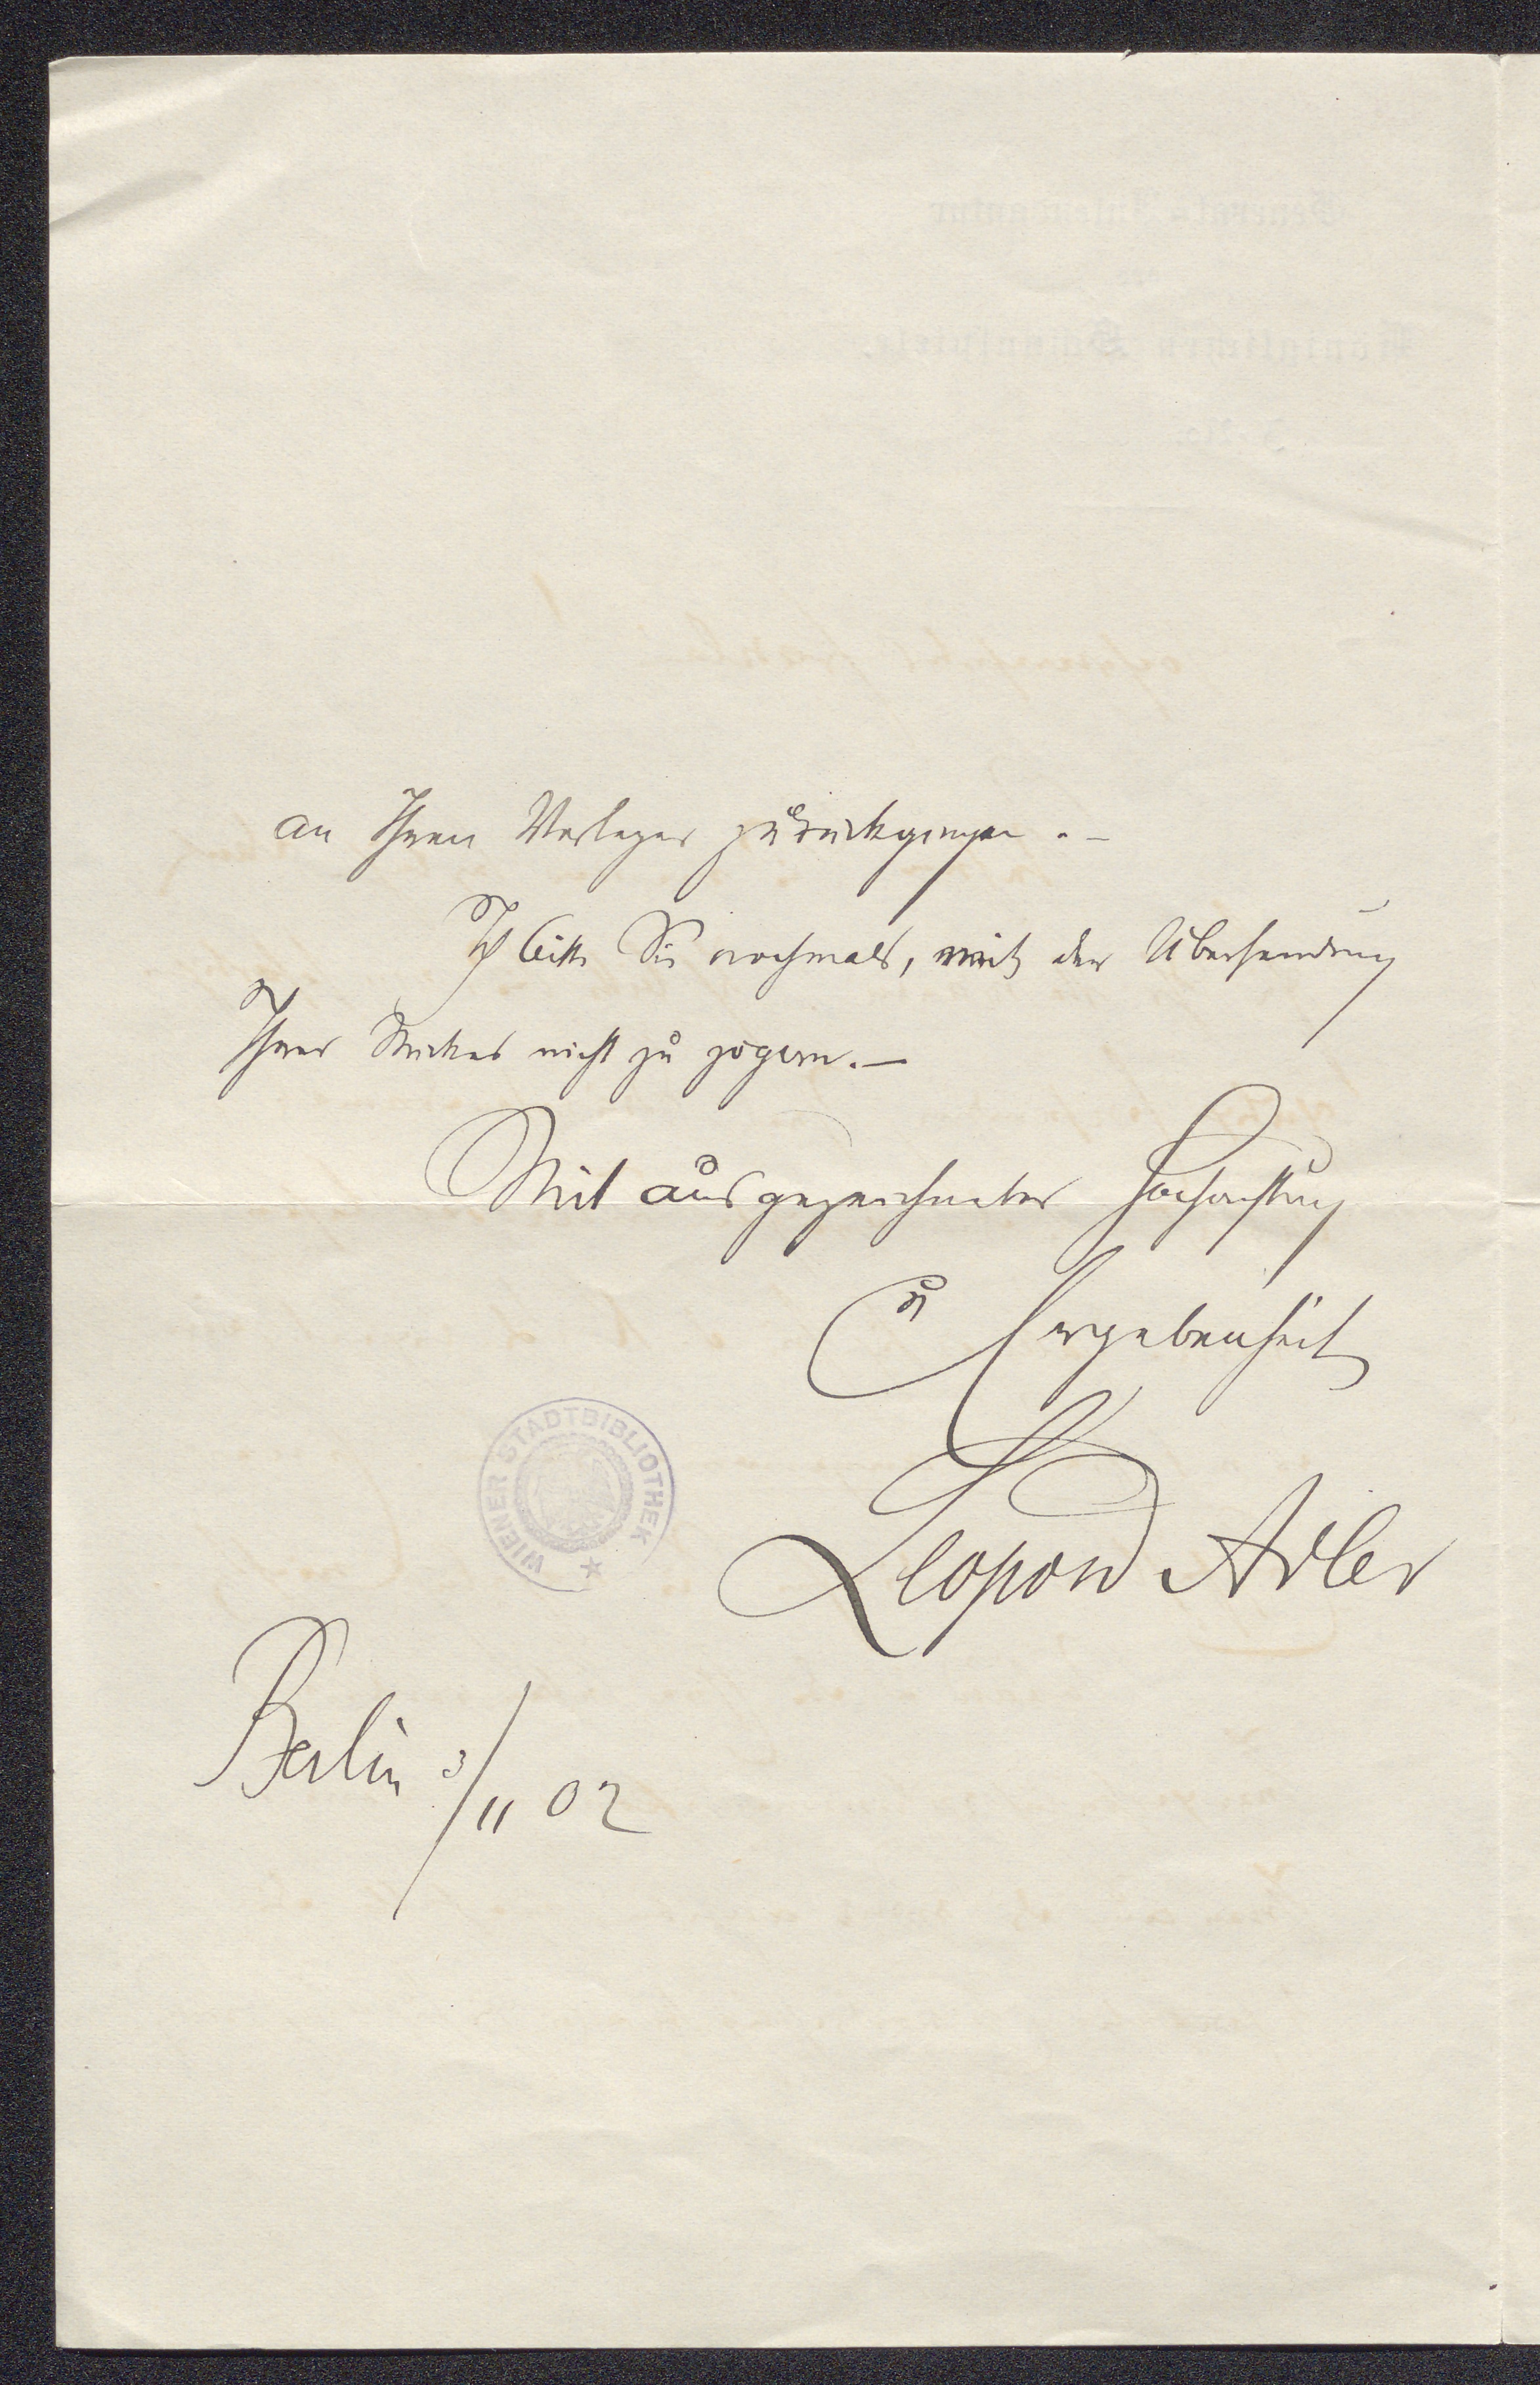 an Ihren Verleger zurückgingen. –
Ich bitte Sie nochmals, mit der Übersendung
Ihres Stückes nicht zu zögern. –
Mit ausgezeichneter Hochachtung
u Ergebenheit
Leopold Adler
WIENER STADTBIBLIOTHEK
Berlin 3/11 02